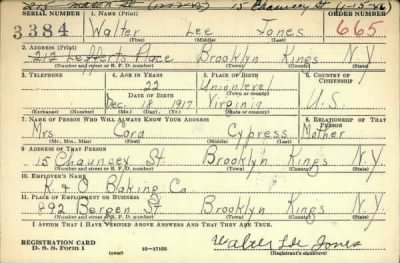 15 Chauncey St 11-15-46
SERIAL NUMBER 1. NAME (Print) ORDER NUMBER
3384 Walter Lee Jones 665
(First) (Middle) (Last)
2. ADDRESS (Print)
212 Lefferts Place Brooklyn Kings N.Y.
(Number and street or R. F. D. number) (Town) (County) (State)
3. TELEPHONE 4. AGE IN YEARS 5. PLACE OF BIRTH 6. COUNTRY OF CITIZENSHIP
22 Unionlevel
DATE OF BIRTH (Town or county)
Dec. 18 1917 Virginia U.S.
(Exchange) (Number) (Mo.) (Day) (Yr.) (State or country)
7. NAME OF PERSON WHO WILL ALWAYS KNOW YOUR ADDRESS 8. RELATIONSHIP OF THAT PERSON
Mrs Cora Cypress Mother
(Mr., Mrs., Miss) (First) (Middle) (Last)
9. ADDRESS OF THAT PERSON
15 Chauncey St. Brooklyn Kings N.Y.
(Number and street or R. F. D. number) (Town) (County) (State)
10. EMPLOYER'S NAME
K. & O. Baking Co.
11. PLACE OF EMPLOYMENT OR BUSINESS
892 Bergen St Brooklyn Kings N.Y.
(Number and street or R. F. D. number) (Town) (County) (State)
I AFFIRM THAT I HAVE VERIFIED ABOVE ANSWERS AND THAT THEY ARE TRUE.
REGISTRATION CARD
D. S. S. FORM 1 (over) 16—17105 Walter Lee Jones
(Registrant's signature)